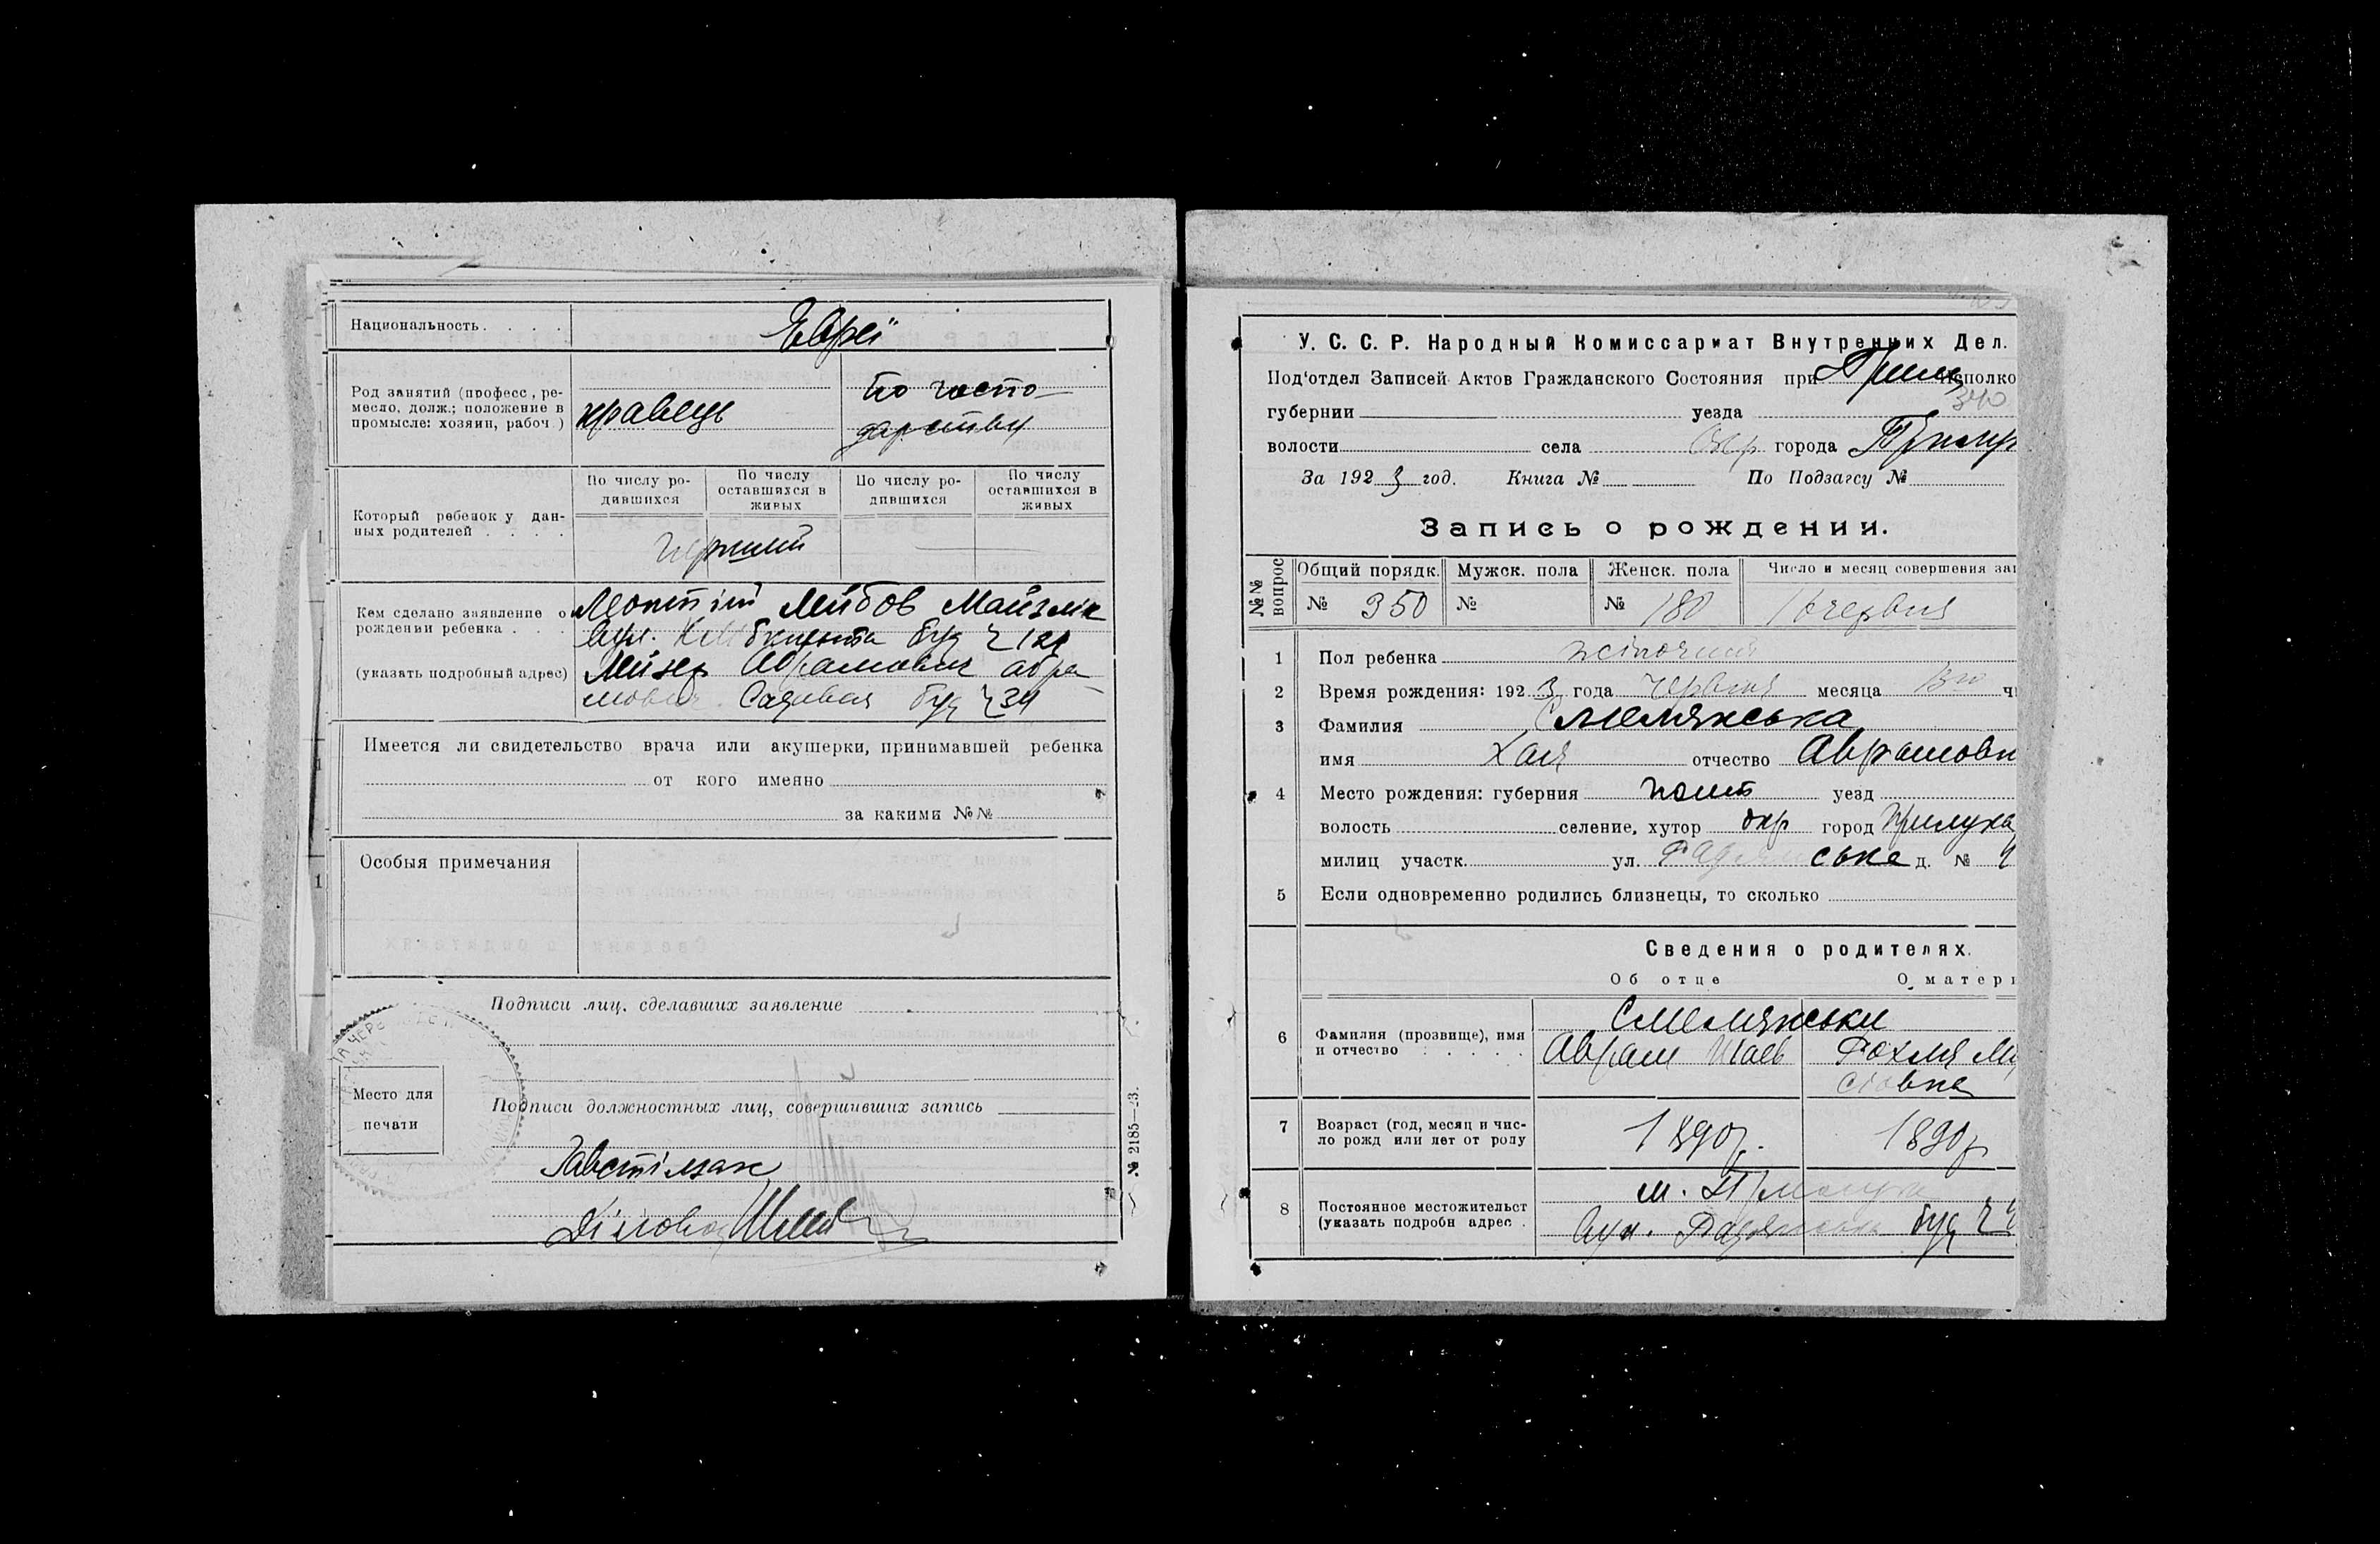 Национальность. . . . .
Евреї
Род занятий (професс, ре-
месло, долж.; положение в
промысле: хозяин, рабоч )
кравець
по госпо-
дарству
По числу ро-
дившихся
По числу
оставшихся в
живых
По числу ро-
дившихся
По числу
оставшихся в
живых
Который ребенок у дан-
ных родителей . . . .
Кем сделано заявление о
рождении ребенка . . .
(указать подробный адрес)
Лейбов
буд
12
Абрамович
Садовая буд 34
Имеется ли свидетельство врача или акушерки, принимавшей ребенка
от кого именно
за какими №№
Особыя примечания
Подписи лиц. сделавших заявление
Место для
печати
Подписи должностных лиц, совершивших запись
Діловод
№ 2185—23.
У. С. С. Р. Народный Комиссариат Внутренних Дел.
Под'отдел Записей Актов Гражданского Состояния при Прилу Исполко
340
губернии уезда
волости села Окр города Прилу
За 192 3 год. Книга № По Подзагсу №
Запись о рождении.
№№ вопрос
Общий порядк.
Мужск. пола
Женск. пола
Число и месяц совершения зап
№ 350
№
№ 180
червня
1 Пол ребенка жіночий
2 Время рождения: 192 3 года червня месяца 13го ч
3 Фамилия Смелянська
имя Хая отчество Аврамовн
4 Место рождения: губерния Полт уезд
волость селение, хутор окр город Прилука
милиц участк. ул. Радянська д. №
5 Если одновременно родились близнецы, то сколько
Сведения о родителях.
Об отце
О матери
6 Фамилия (прозвище), имя
и отчество : . . . .
Смелянськи
Аврам Шаев
Рохля Мо
сіовна
7 Возраст (год, месяц и чис-
ло рожд или лет от роду
1890р.
1890р
8 Постоянное местожительст
(указать подробн адрес .
м. Прилука
вул. Радянська буд